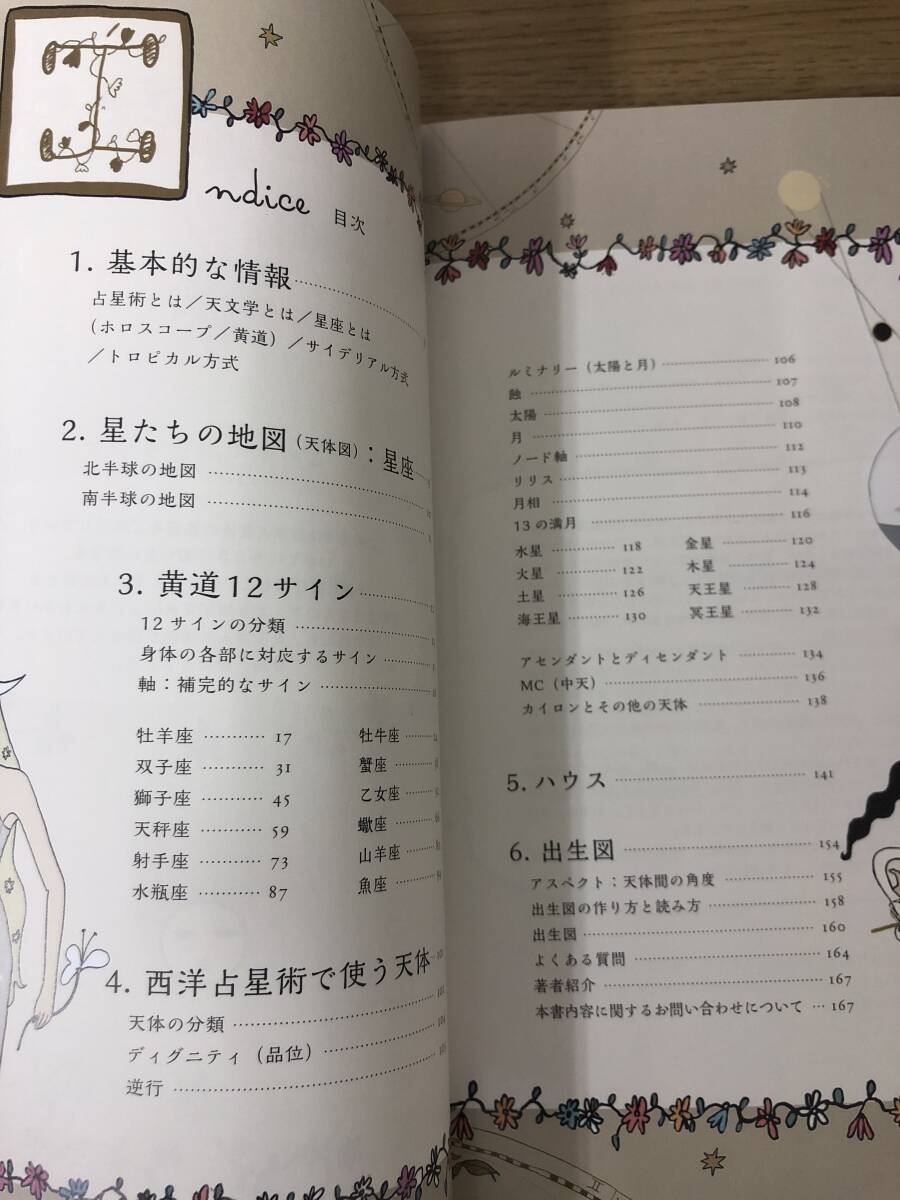 Indice 目次
1. 基本的な情報
占星術とは／天文学とは／星座とは
（ホロスコープ／黄道）／サイデリアル方式
／トロピカル方式
2. 星たちの地図（天体図）：星座
北半球の地図
南半球の地図
3. 黄道12サイン
12サインの分類
身体の各部に対応するサイン
軸：補完的なサイン
牡羊座 17 牡牛座
双子座 31 蟹座
獅子座 45 乙女座
天秤座 59 蠍座
射手座 73 山羊座
水瓶座 87 魚座
4. 西洋占星術で使う天体
天体の分類
ディグニティ（品位）
逆行
ルミナリー（太陽と月） 106
蝕 107
太陽 108
月 110
ノード軸 112
リリス 113
月相 114
13の満月 116
水星 118 金星 120
火星 122 木星 124
土星 126 天王星 128
海王星 130 冥王星 132
アセンダントとディセンダント 134
MC（中天） 136
カイロンとその他の天体 138
5. ハウス 141
6. 出生図 154
アスペクト：天体間の角度 155
出生図の作り方と読み方 158
出生図 160
よくある質問 164
著者紹介 167
本書内容に関するお問い合わせについて 167